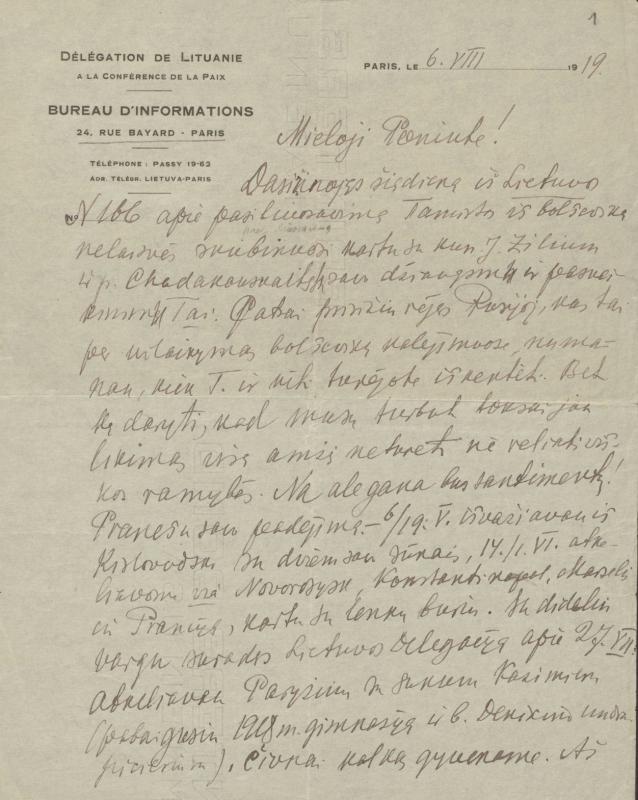 1
DÉLÉGATION DE LITUANIE
A LA CONFÉRENCE DE LA PAIX
BUREAU D'INFORMATIONS
24, RUE BAYARD - PARIS
TÉLÉPHONE : PASSY 19-62
ADR. TÉLÉGR. LIETUVA-PARIS
PARIS, LE 6. VIII 1919.
No 166
Mieloji Poniute!
Dasižinojęs šiądieną iš Lietuvos
apie pasiliuosavimą Tamistos iš bolševikų
nelaisvės skubinuosi kartu su kun. J. Žilium
ir p. Chodakauskaite savo džiaugsmą ir pasvei-
kinimą Tai. Rusijoj, kas tai
per užlaikymas bolševikų kalėjimuose, numa-
nau, kiek T. ir kiti turėjote iškentėt. Bet
ką daryti, kad musų turbut toksai jau
likimas visą amžį neturėti nė reliativiš-
kos ramybės. Na ale gana bus santimentų!
Pranešu savo padėjimą.- 6/19. V. išvažiavau iš
Kislovodsko su dviem savo sūnais, 14./1. VI. atke-
liavome via Novorosijsk, Konstantinopol, Marselį
in Prancųz, kartu su lenkų buriu. Su dideliu
vargu surados Lietuvos Delegaciją apie 27. VII.
atkeliavau Paryžiun su sunum Kazimieru
(pabaigusiu 1918 m. gimnaziją ir b. Denikino
), čionai kolkas gyvename. Aš